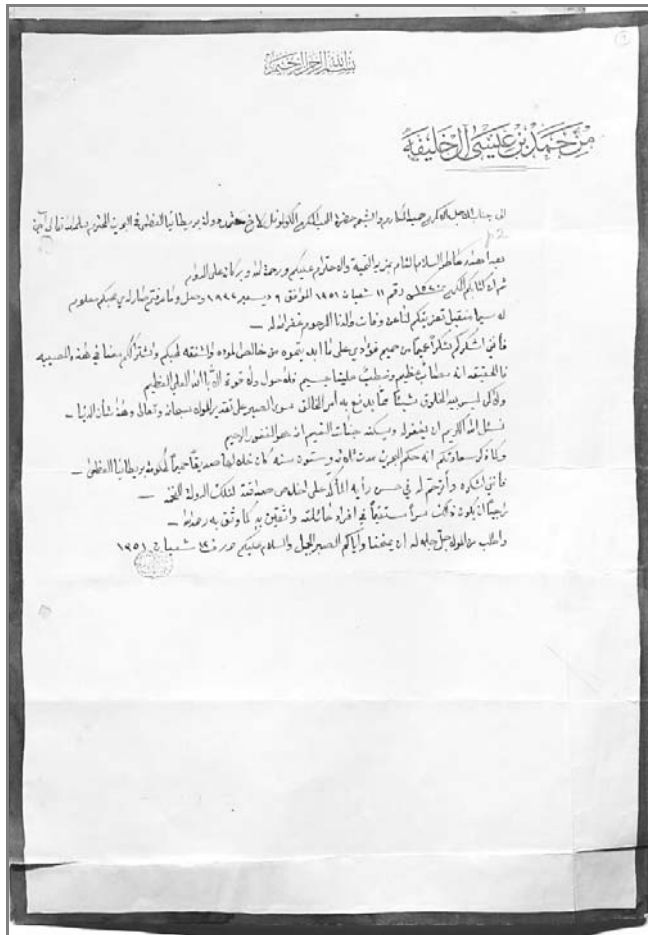 بسم الله الرحمن الرحيم
من حمد بن عيسى آل خليفه
الى جناب الاجل الاكرم حميد الشيم حضرة المحب الكولونيل دولة بريطانيا العظمى في البحرين المحترم سلمه الله تعالى آمين
بعد اهداء عاطر السلام التام بمزيد التحية والاحترام عليكم ورحمة الله وبركاته على الدوام
كتابكم الكريم رقم ١١ شعبان ١٣٥١ الموافق ٩ ديسمبر ١٩٣٢ وصل وما عرفتم صار لدى محبكم معلوم
لا سيما تعزيتكم لنا عن وفات والدنا المرحوم غفر الله له –
فأني اشكركم شكراً عميماً من صميم فؤادي على ما ابديتموه من خالص الموده والشفقه لمحبكم واشتراككم معنا في هذه المصيبه
فالحقيقه انه مصاب عظيم وخطب علينا جسيم فلا حول ولا قوة الا بالله العلي العظيم
ولكن ليس بيد المخلوق شيئاً مما يدفع به أمر الخالق سوى الصبر على تقدير المولا سبحانه وتعالى وهذا شأن الدنيا –
نسئل الله الكريم ان يغفر له ويسكنه جنات النعيم انه هو الغفور الرحيم
وكما ذكر سعادتكم انه حكم البحرين مدت ثلاثه وستون سنه كان خلالها صديقاً حميماً لحكومة بريطانيا العظمى –
فأني اشكره وأترحم له في حسن رأيه المأكد على اخلاص صداقته لتلك الدولة الفخمه –
راجياً ان يكون ذلك مستديماً في افراد عائلته واثقين به كما وثق به رحمه الله –
واطلب من المولا جل جلاله ان يمنحنا وأياكم الصبر الجميل والسلام عليكم حرر في ١٣ شعبان ١٣٥١